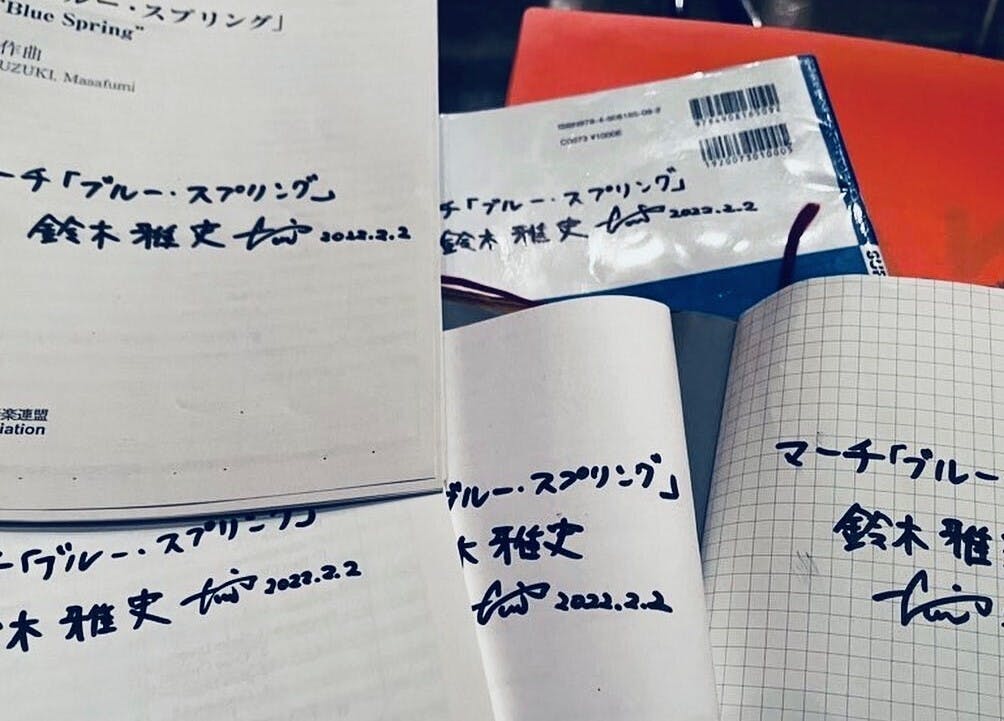 ルー・スプリング」
"Blue Spring"
作曲
UZUKI, Masafumi
ーチ「ブルー・スプリング」
鈴木雅史 2022.2.2
楽連盟
iation
チ「ブルー・スプリング」
鈴木雅史 2022.2.2
ー「ブルー・スプリング」
木雅史 2022.2.2
ブルー・スプリング」
木雅史
2022.2.2
マーチ「ブルー
鈴木雅